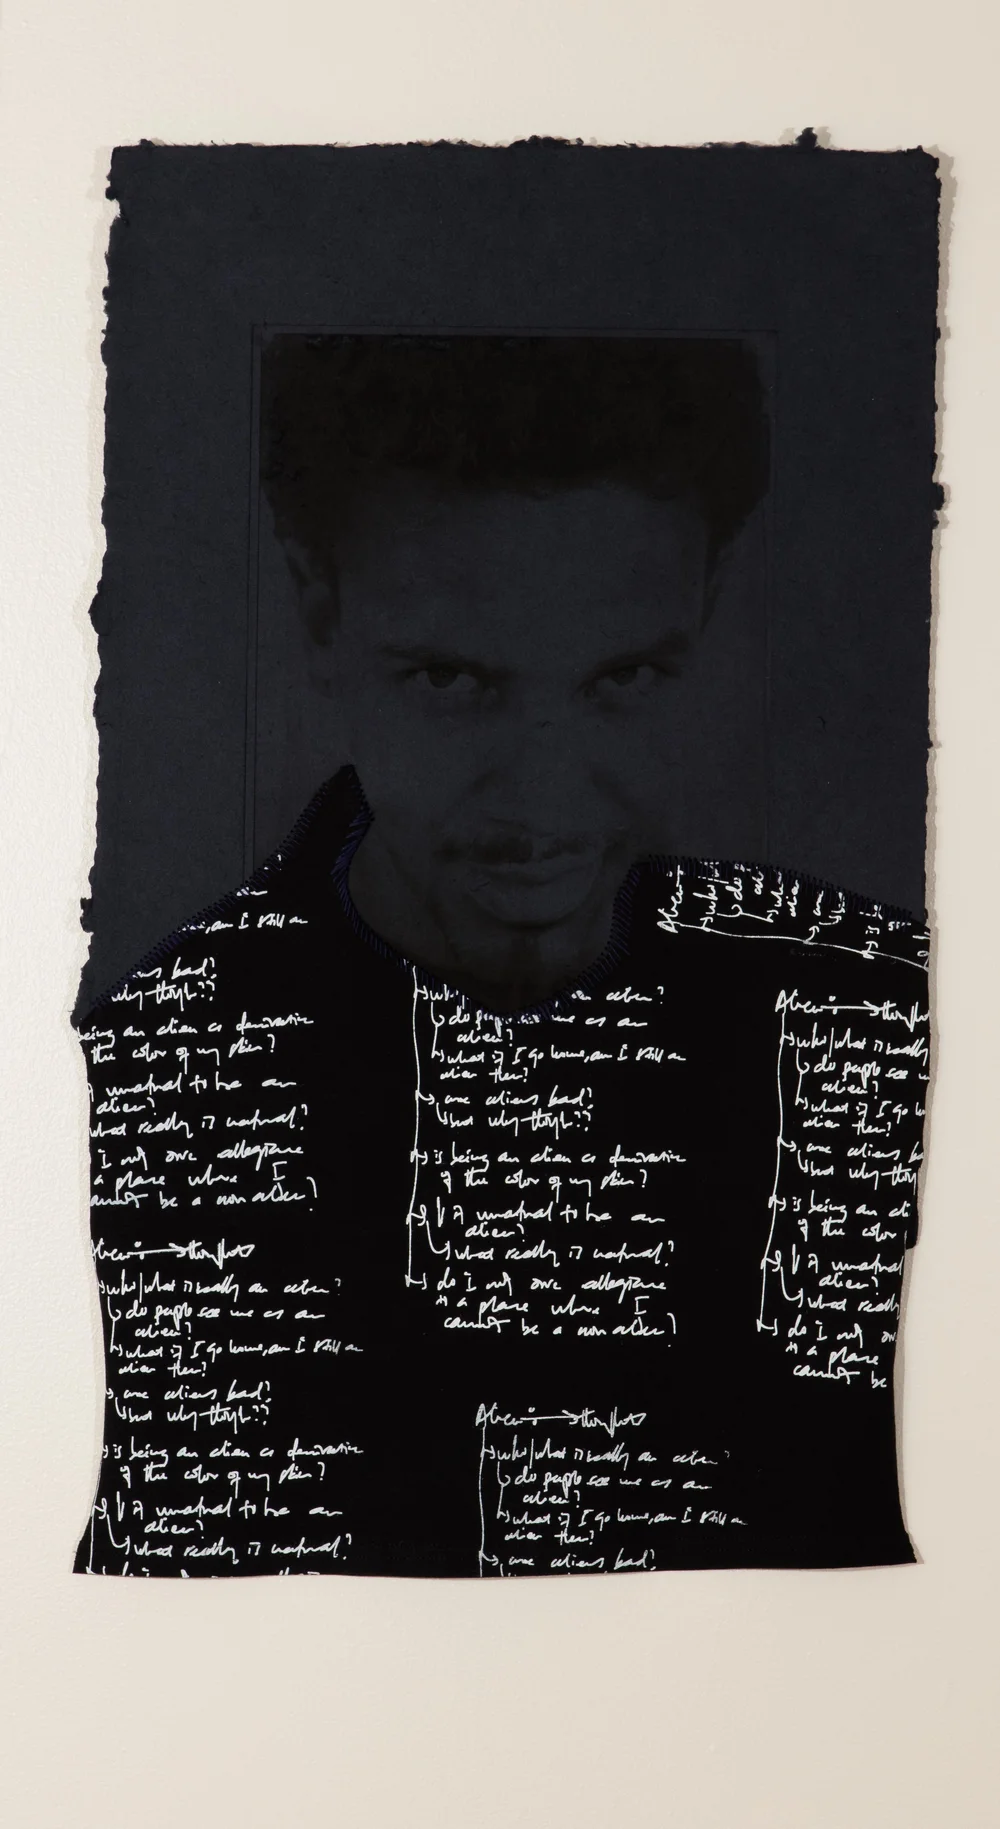 am I still an
aliens bad?
why though??
being an alien a derivative
the color of my skin?
unnatural to be an
alien?
what really is natural?
I not owe allegiance
a place where I
cannot be a non alien?
Alien: → thoughts
who/what is really an alien?
do people see me as an
alien?
what if I go home, am I still an
alien then?
are aliens bad?
but why though??
is being an alien a derivative
of the color of my skin?
is it unnatural to be an
alien?
what really is natural?
an alien?
do people see me as an
alien?
what if I go home, am I still an
alien then?
are aliens bad?
but why though??
is being an alien a derivative
of the color of my skin?
is it unnatural to be an
alien?
what really is natural?
do I not owe allegiance
to a place where I
cannot be a non alien?
Alien: → thoughts
who/what is really an alien?
do people see me as an
alien?
what if I go home, am I still an
alien then?
are aliens bad?
Alien:
who/
do
Alien: → though
who/what is really
do people see
alien?
what if I go
alien then?
are aliens
but why
is being an
of the color
is it unnatural
alien?
what really
do I not
to a place
cannot be